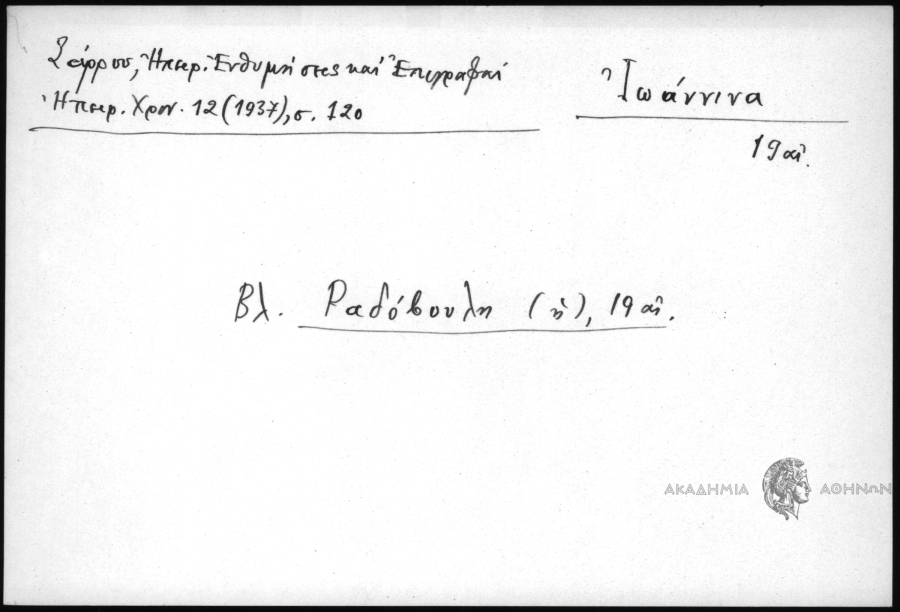 Σάρρου, Ἠπειρ. Ἐνθυμήσεις καὶ Ἐπιγραφαὶ
Ἠπειρ. Χρον. 12 (1937), σ. 120
Ἰωάννινα
19 αἰ.
Βλ. Ραδόβουλη (ἡ), 19 αἰ.
ΑΚΑΔΗΜΙΑ ΑΘΗΝΩΝ